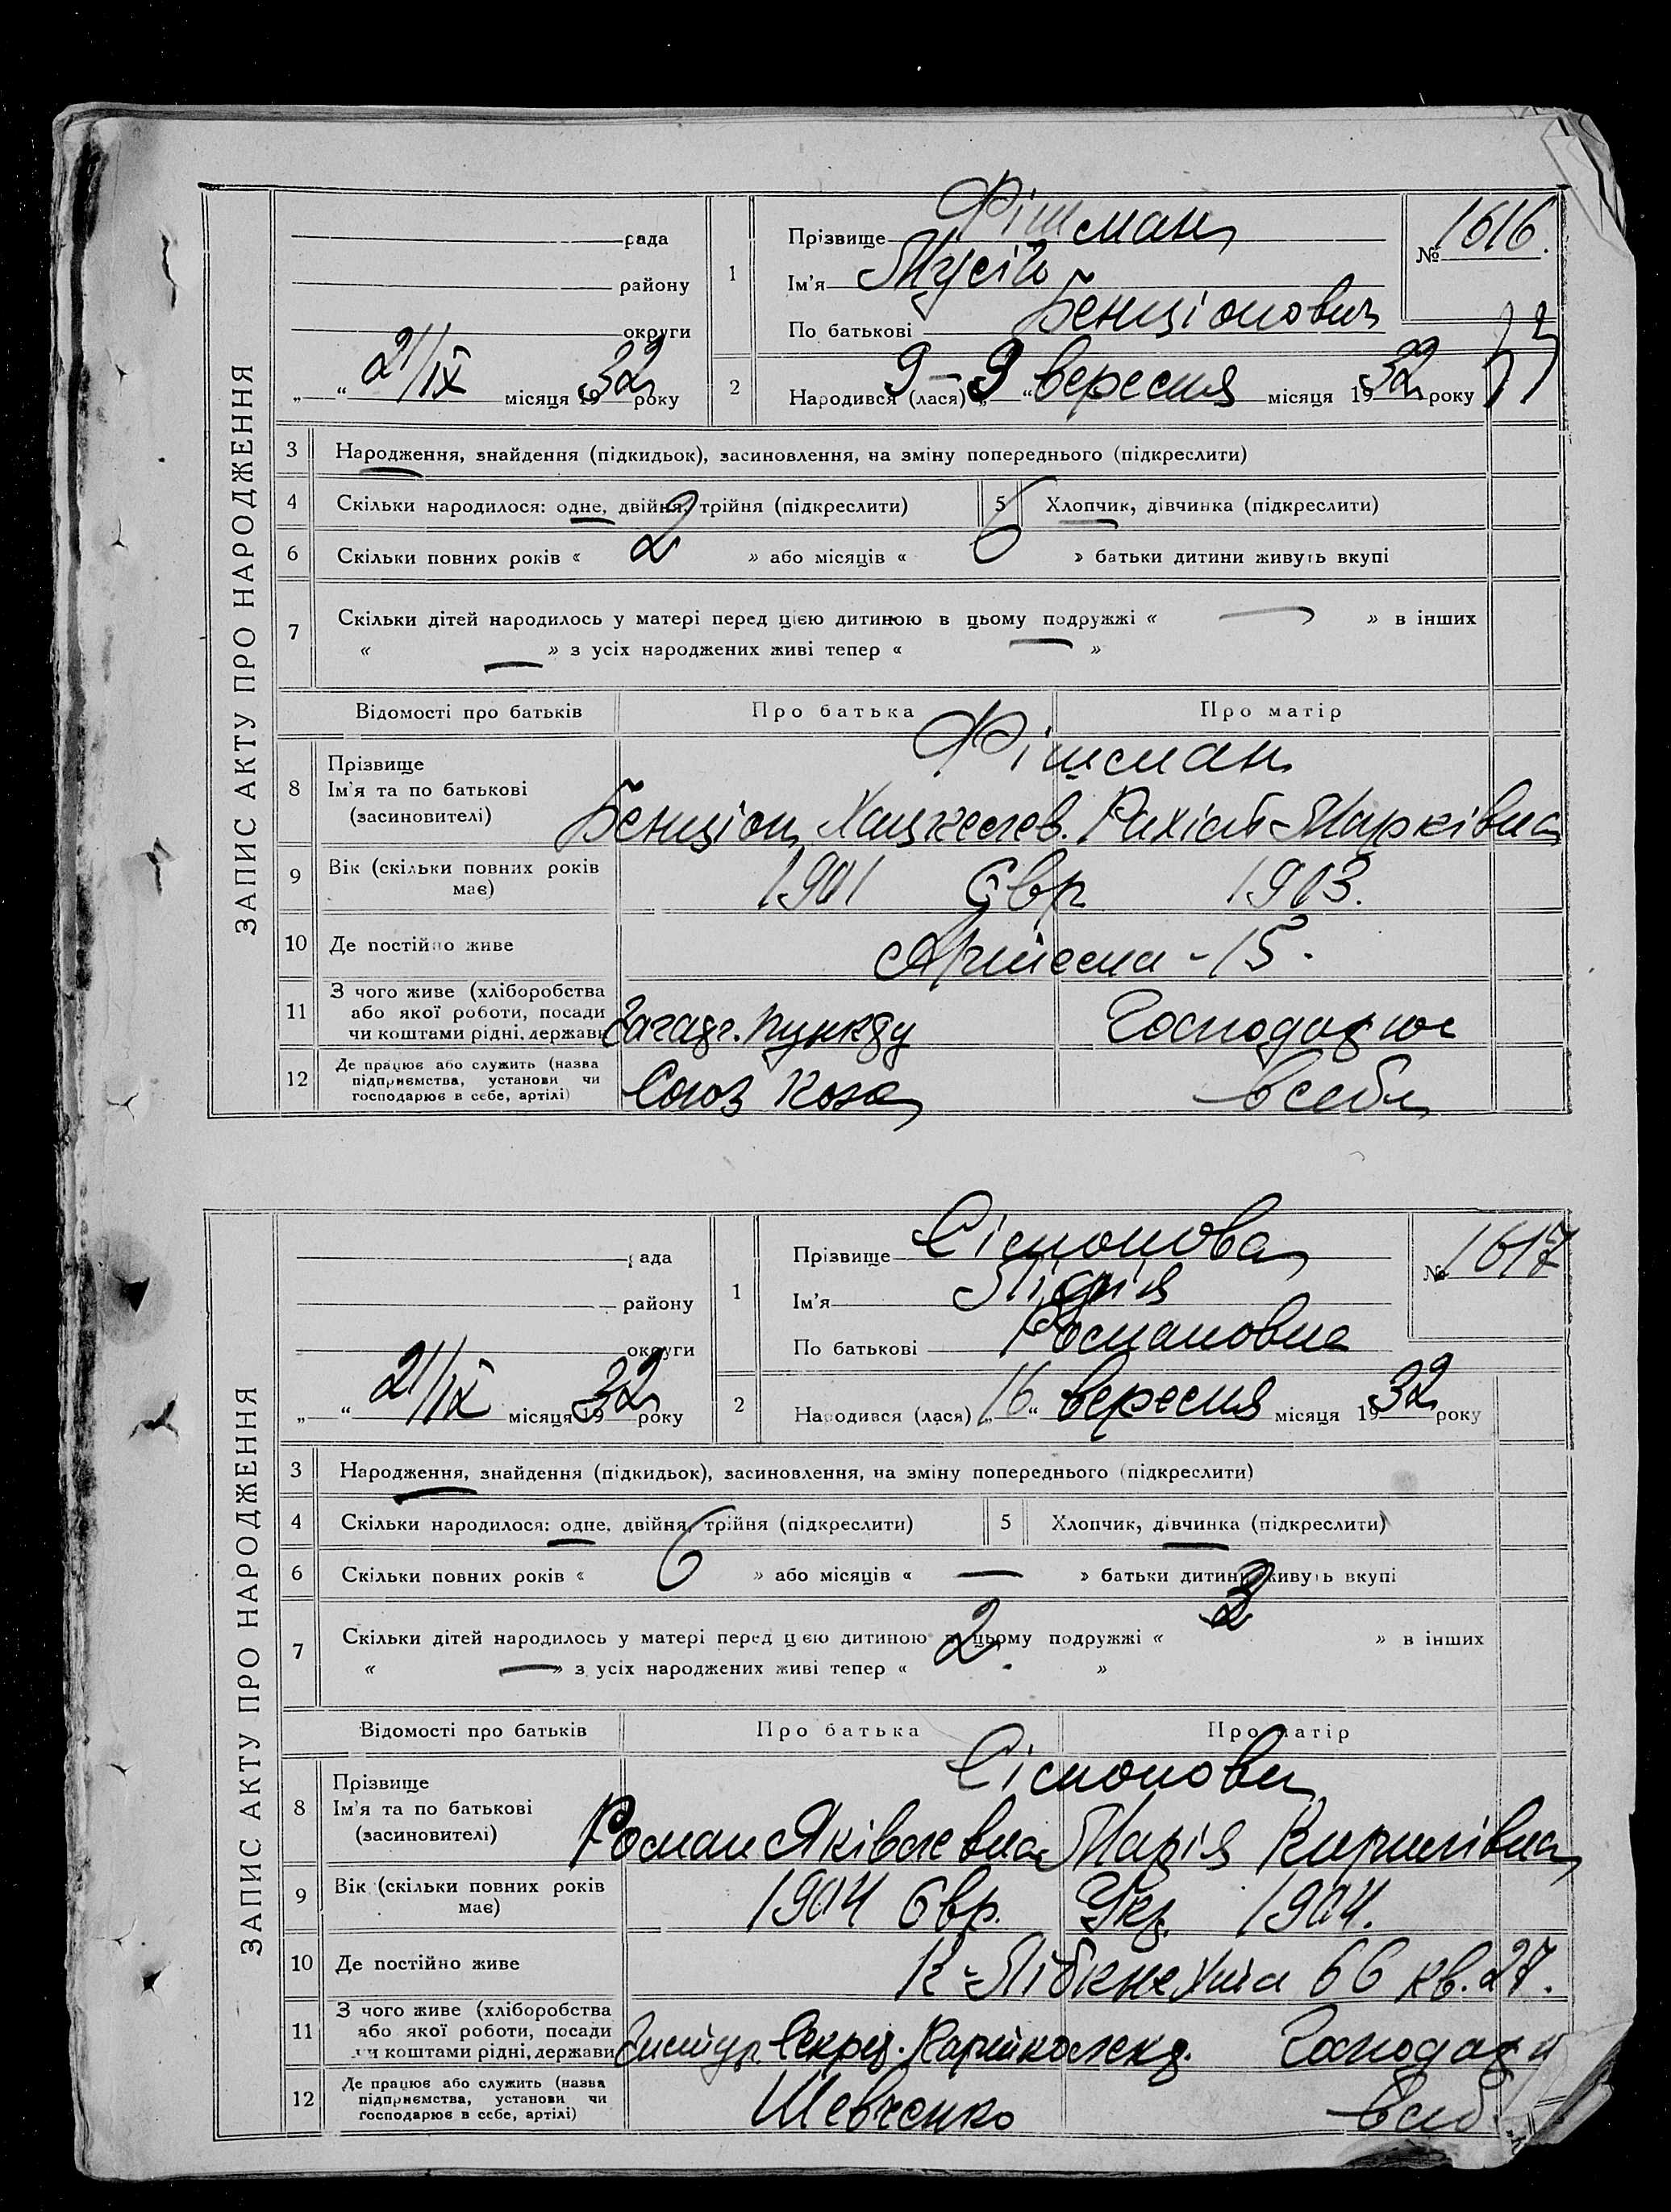 ЗАПИС АКТУ ПРО НАРОДЖЕННЯ
рада
району
округи
„ “ 21/IX місяця 1932 року
1
Прізвище Фішман
Ім'я Мусій
По батькові Бенціонович
№ 1616.
2
Народився (лася) „ 9 – 9 “ вересня місяця 1932 року
3 Народження, знайдення (підкидьок), засиновлення, на зміну попереднього (підкреслити)
4 Скільки народилося: одне, двійня, трійня (підкреслити) 5 Хлопчик, дівчинка (підкреслити)
6 Скільки повних років « 2 » або місяців « 6 » батьки дитини живуть вкупі
7 Скільки дітей народилось у матері перед цією дитиною в цьому подружжі « — » в інших
« — » з усіх народжених живі тепер « — »
Відомості про батьків Про батька Про матір
8 Прізвище Фішман
Ім'я та по батькові
(засиновителі) Бенціон Хацкелев. Рахіль Марківна
9 Вік (скільки повних років має) 1901 Євр 1903.
10 Де постійно живе Артема - 15.
11 З чого живе (хліборобства
або якої роботи, посади
чи коштами рідні, держави Загадг. пункду Господарює
12 Де працює або служить (назва
підприємства, установи чи
господарює в себе, артілі) Союз Кожа в себе
ЗАПИС АКТУ ПРО НАРОДЖЕННЯ
рада
району
округи
„ “ 21/IX місяця 1932 року
1
Прізвище Сімонова
Ім'я Лідія
По батькові Романовна
№ 1617
2
Народився (лася) „ 16 “ вересня місяця 1932 року
3 Народження, знайдення (підкидьок), засиновлення, на зміну попереднього (підкреслити)
4 Скільки народилося: одне, двійня, трійня (підкреслити) 5 Хлопчик, дівчинка (підкреслити)
6 Скільки повних років « 6 » або місяців « — » батьки дитини живуть вкупі
7 Скільки дітей народилось у матері перед цією дитиною в цьому подружжі « 2 » в інших
« — » з усіх народжених живі тепер « 2 »
Відомості про батьків Про батька Про матір
8 Прізвище Сімонови
Ім'я та по батькові
(засиновителі) Роман Яківлевич Марія Кирилівна
9 Вік (скільки повних років має) 1904 Євр. Укр. 1904.
10 Де постійно живе К-Лібкнехта 66 кв. 27.
11 З чого живе (хліборобства
або якої роботи, посади
чи коштами рідні, держави Секрет. Парт Господар
12 Де працює або служить (назва
підприємства, установи чи
господарює в себе, артілі) Шевченко в себ